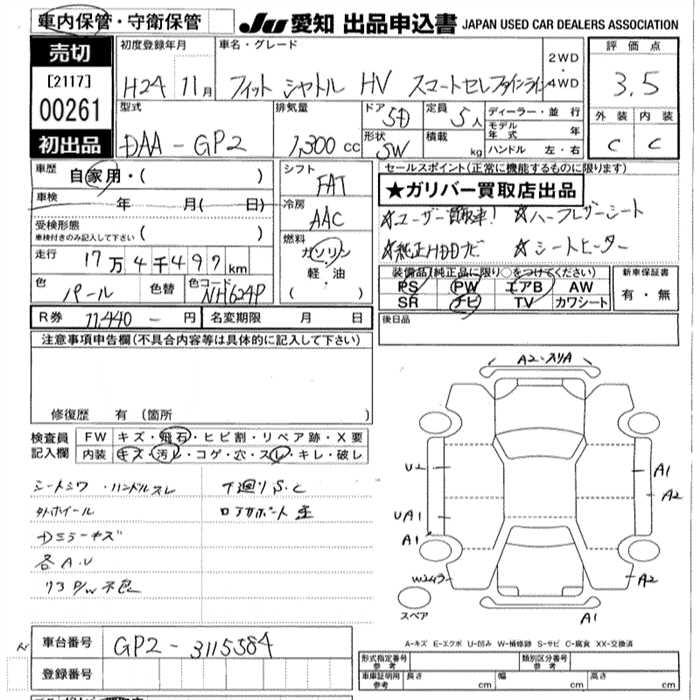 車内保管・守衛保管
JU 愛知 出品申込書 JAPAN USED CAR DEALERS ASSOCIATION
売切
[2117]
00261
初出品
初度登録年月
H24 11月
車名・グレード
フィット シャトル HV スマートセレクファインライン
2WD
・
4WD
評価点
3.5
外装 内装
C C
型式
DAA-GP2
排気量
1,300 cc
ドア
5D
定員
5人
形状
SW
積載
kg
ディーラー・並行
モデル年式 年
ハンドル 左・右
車歴
自家用・( )
車検
年 月( 日)
受検形態
車検付きのみ記入して下さい ( )
走行
17万4千497km
色
パール
色替
色コード
NH624P
シフト
FAT
冷房
AAC
燃料
ガソリン
軽・油
( )
セールスポイント(正常に機能するものに限ります)
★ガリバー買取店出品
☆ユーザー買取車! ☆ハーフレザーシート
☆純正HDDナビ ☆シートヒーター
装備品(純正品に限り○をつけてください)
PS PW エアB AW
SR ナビ TV カワシート
新車保証書
有・無
R券 11,440- 円
名変期限 月 日
後日品
注意事項申告欄(不具合内容等は具体的に記入して下さい)
修復歴 有(箇所 )
検査員記入欄
FW キズ・飛石・ヒビ割・リペア跡・X要
内装 キズ・汚レ・コゲ・穴・スレ・キレ・破レ
シートシワ・ハンドルスレ
下廻りS.C
外ホイール
Dミラーキズ
各A.U
P/W不良
A2
A1
A2
U2
UA1
A1
W2
A2
A1
スペア
A-キズ E-エクボ U-凹み W-補修跡 S-サビ C-腐食 XX-交換済
車台番号
GP2-3115384
登録番号
形式指定番号
参考
類別区分番号
参考
車庫証明用
参考
長さ cm
幅 cm
高さ cm